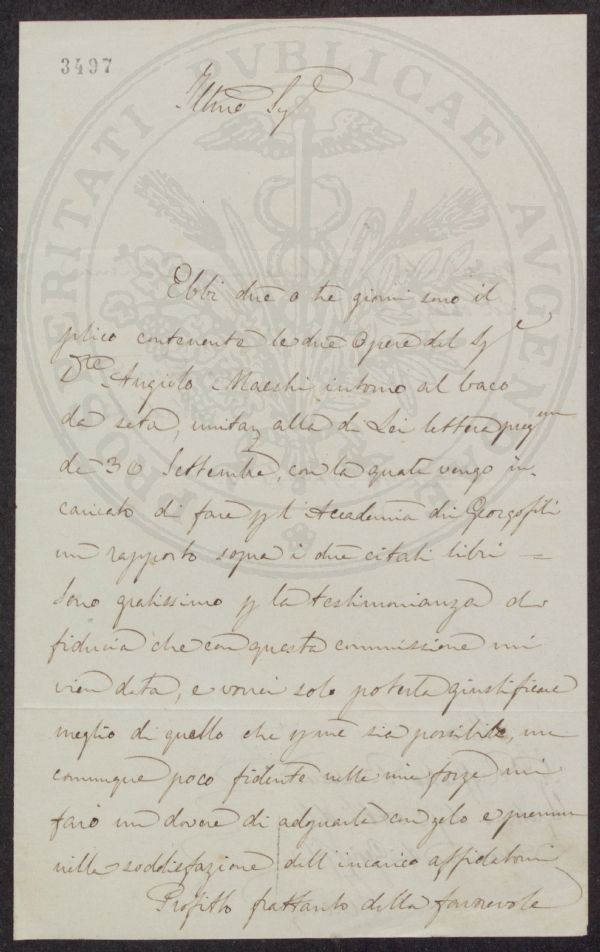 3497
PROSPERITATI PVBLICAE AVGENDAE
Illmo Sigre
Ebbi due o tre giorni sono il
plico contenente le due Opere del Sigre
Dre Angiolo Maestri intorno al baco
da seta, unitam alla di Lei lettera pregma
de 30 Settembre, con la quale vengo in-
caricato di fare pl Accademia dei Georgofili
un rapporto sopra i due citati libri =
Sono gratissimo p la testimonianza di
fiducia che con questa commissione mi
vien data, e vorrei solo poterla giustificare
meglio di quello che p me sia possibile, ma
comunque poco fidente nelle mie forze mi
farò un dovere di adoprarle con zelo e premura
nella soddisfazione dell incarico affidatomi
Profitto frattanto della favorevole